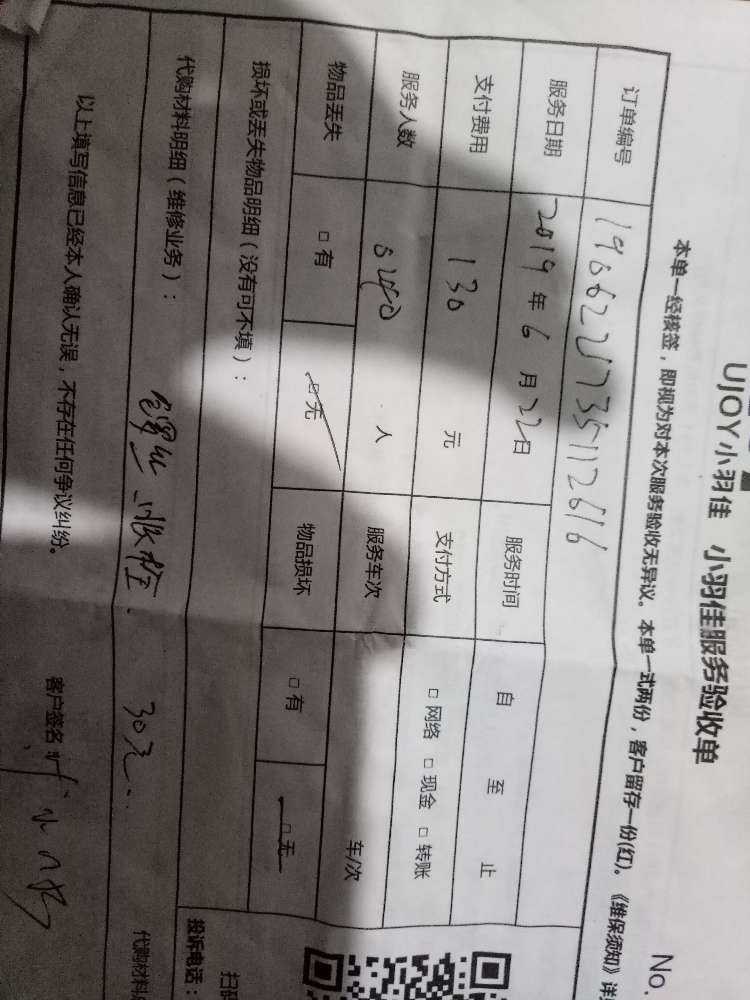 UJOY小羽佳 小羽佳服务验收单
No.
本单一经核签，即视为对本次服务验收无异议。本单一式两份，客户留存一份(红)。《维保须知》详
订单编号
服务日期 2019年6月22日 服务时间 自 至 止
支付费用 130 元 支付方式 □ 网络 □ 现金 □ 转账
服务人数 人 服务车次 车/次
物品丢失 □ 有 □ 无 物品损坏 □ 有 □ 无
损坏或丢失物品明细（没有可不填）：
代购材料明细（维修业务）： 30元
代购材料
以上填写信息已经本人确认无误，不存在任何争议纠纷。
客户签名
投诉电话：